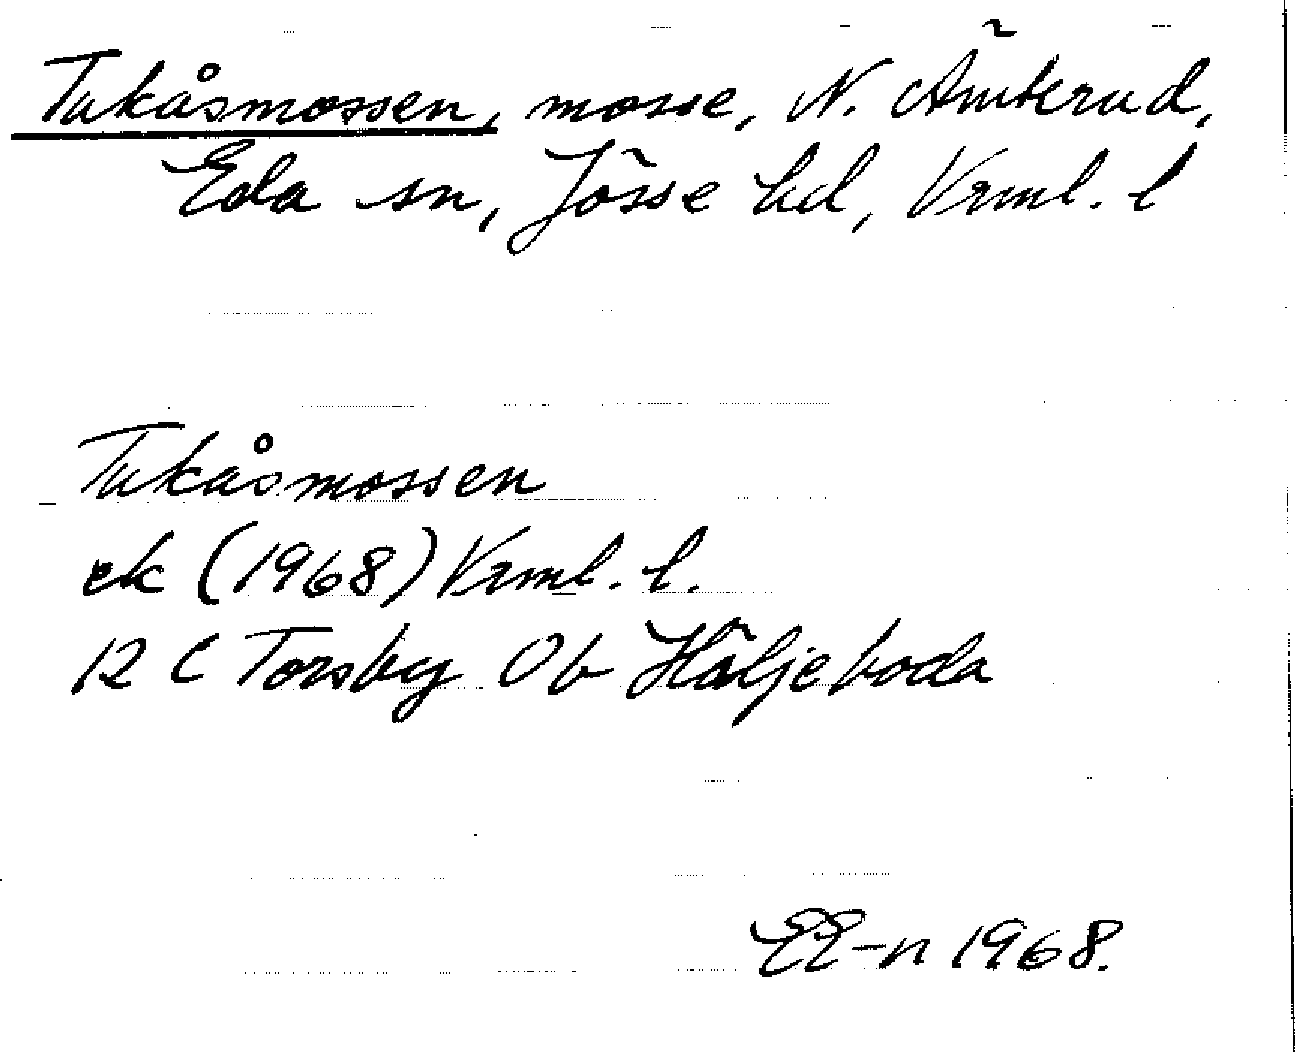 Tukåsmossen, mosse, N. Ämterud,
Eda sn, Jösse hd, Vrml. l
Tukåsmossen
ek (1968) Vrml. l.
12 C Torsby 0b Häljeboda
EE-n 1968.